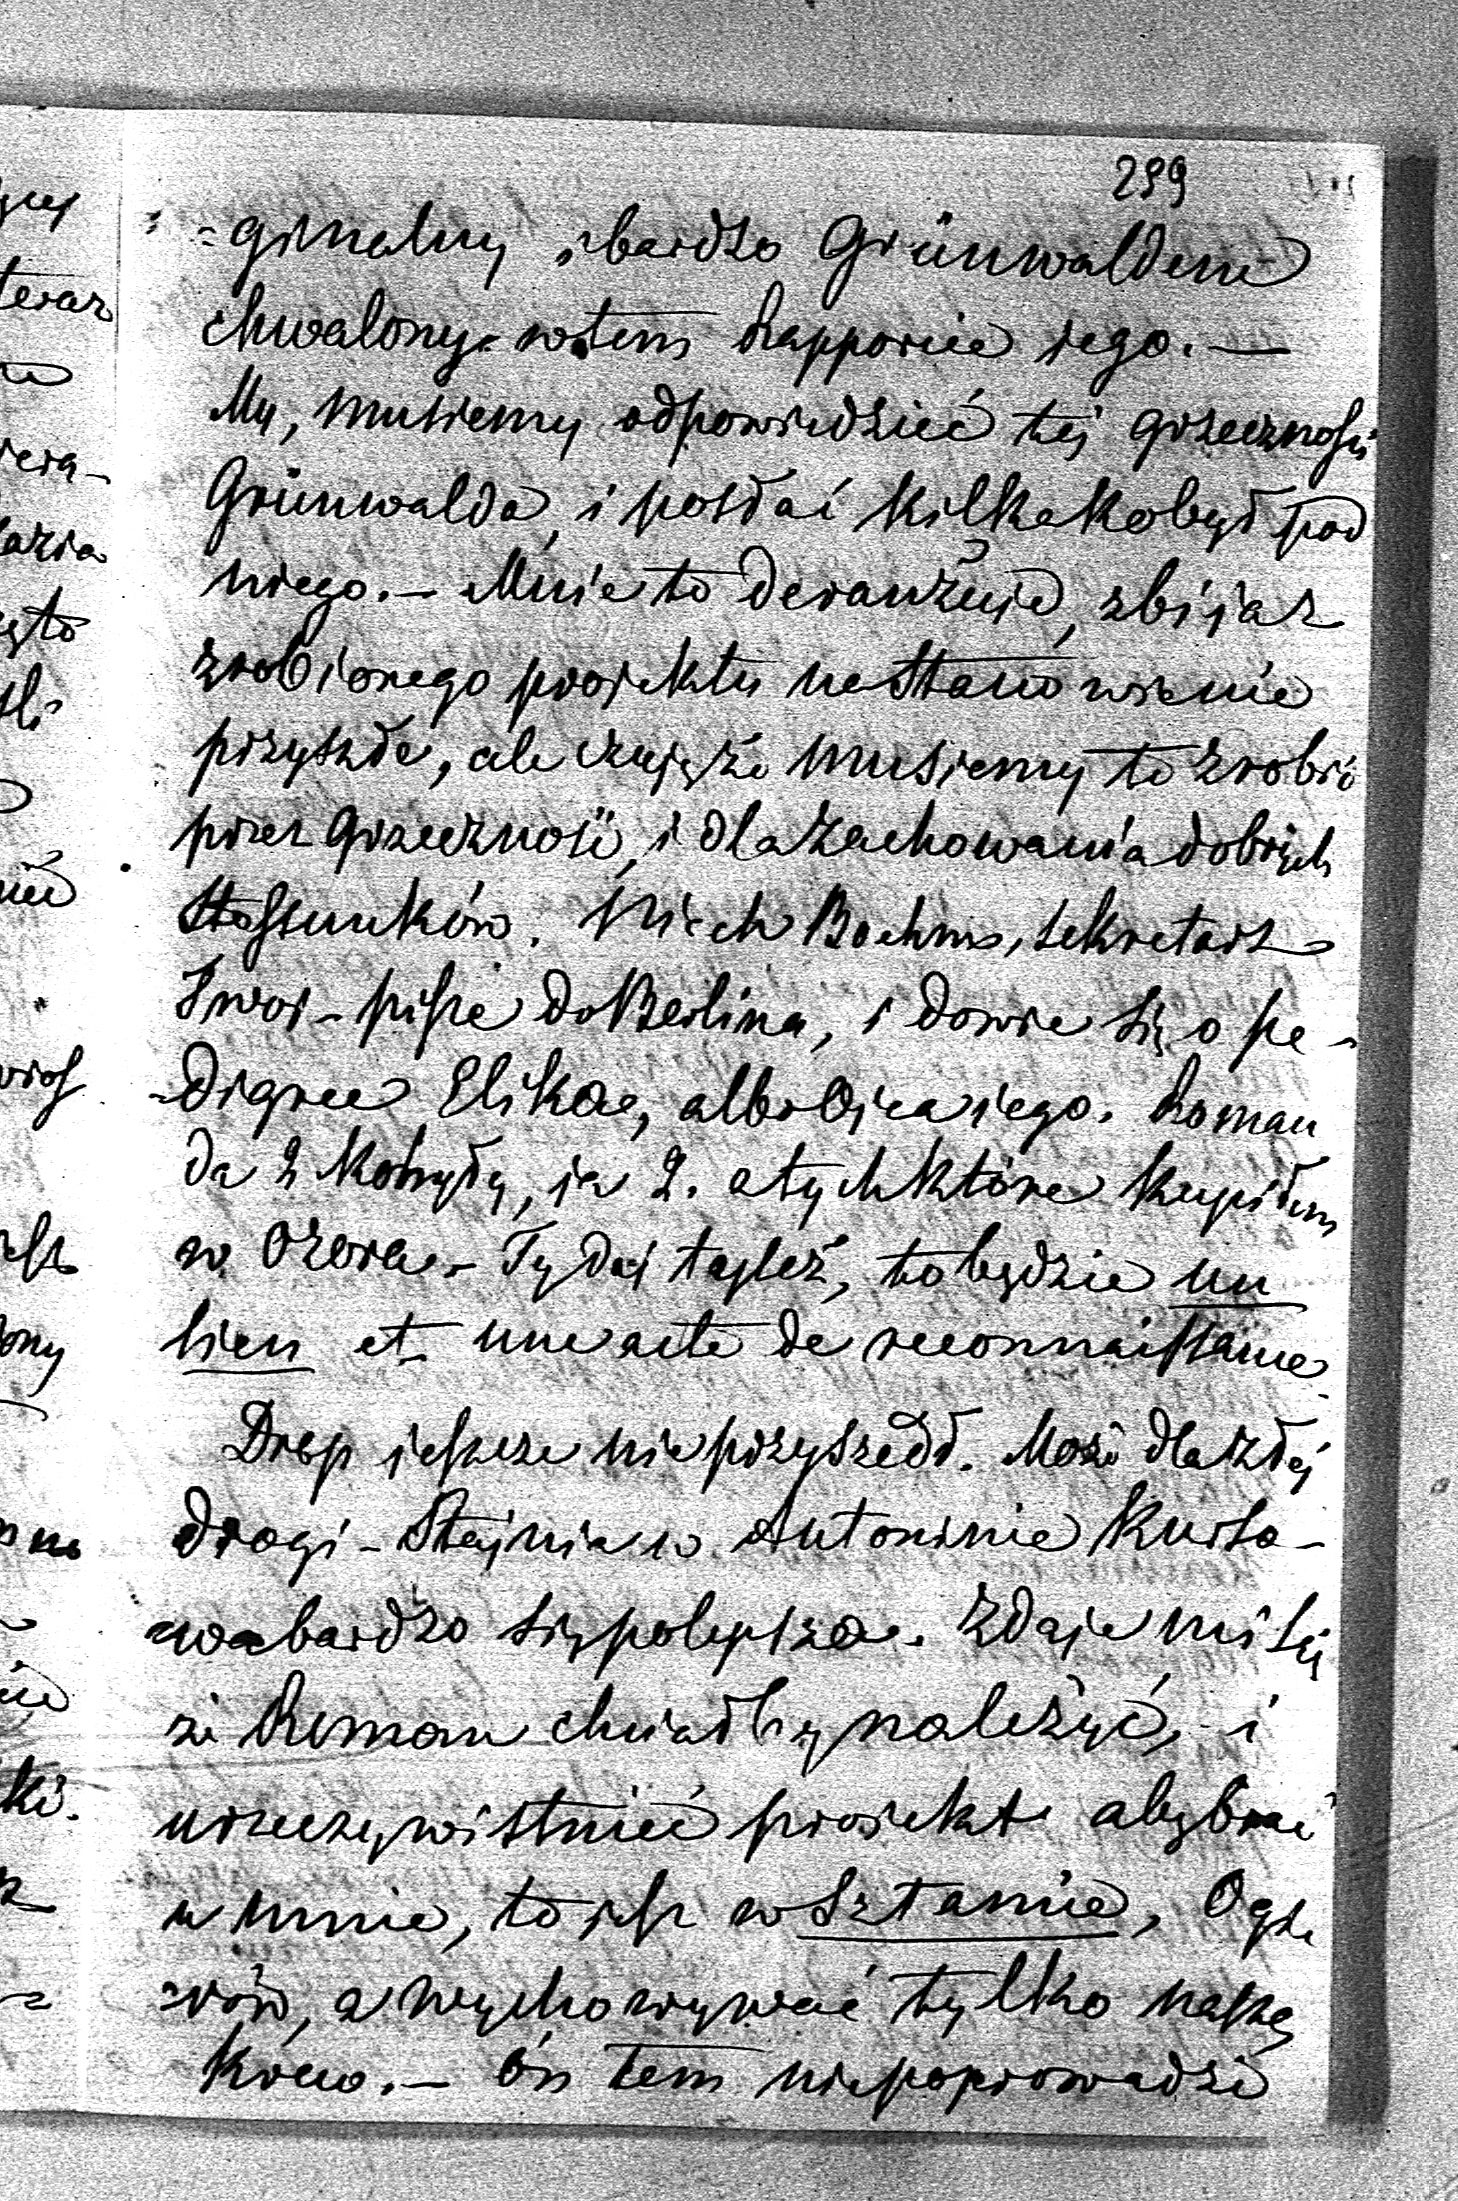 299
=ginalny i bardzo Grünwaldem
chwalony w tem Rapporcie jego. —
My, musiemy odpowiedzieć tej grzeczności
Grünwalda, i posłać kilka kobył pod
niego. — Mnie to deranżuje, zbija z
zrobionego projektu na stanowienie
przyszłe, ale czuję że musiemy to zrobić
przez grzeczność, i dla zachowania dobrych
stossunków. Niech Boehm, sekretarz
Twoj - pisze do Berlina, i dowie się o pe-
-digree Elika, albo Ojca jego. Roman
da 2 kobyły, ja 2. a tych które kupiłem
w Ozora. - Ty daj także, to będzie un
lien et une acte de reconnaissance.
Drap jeszcze nie przyszedł. Może dla złej
drogi - Stajnia w Antoninie Kurso-
-wa bardzo się polepsza. Zdaje mi się
że Roman chciałby należyć, i
urzeczywistnić projekt aby brać
u mnie, to jest w Sztamie, Ogie
-rów, a wychowywać tylko naszą
krew. — On tem niepoprowadzi